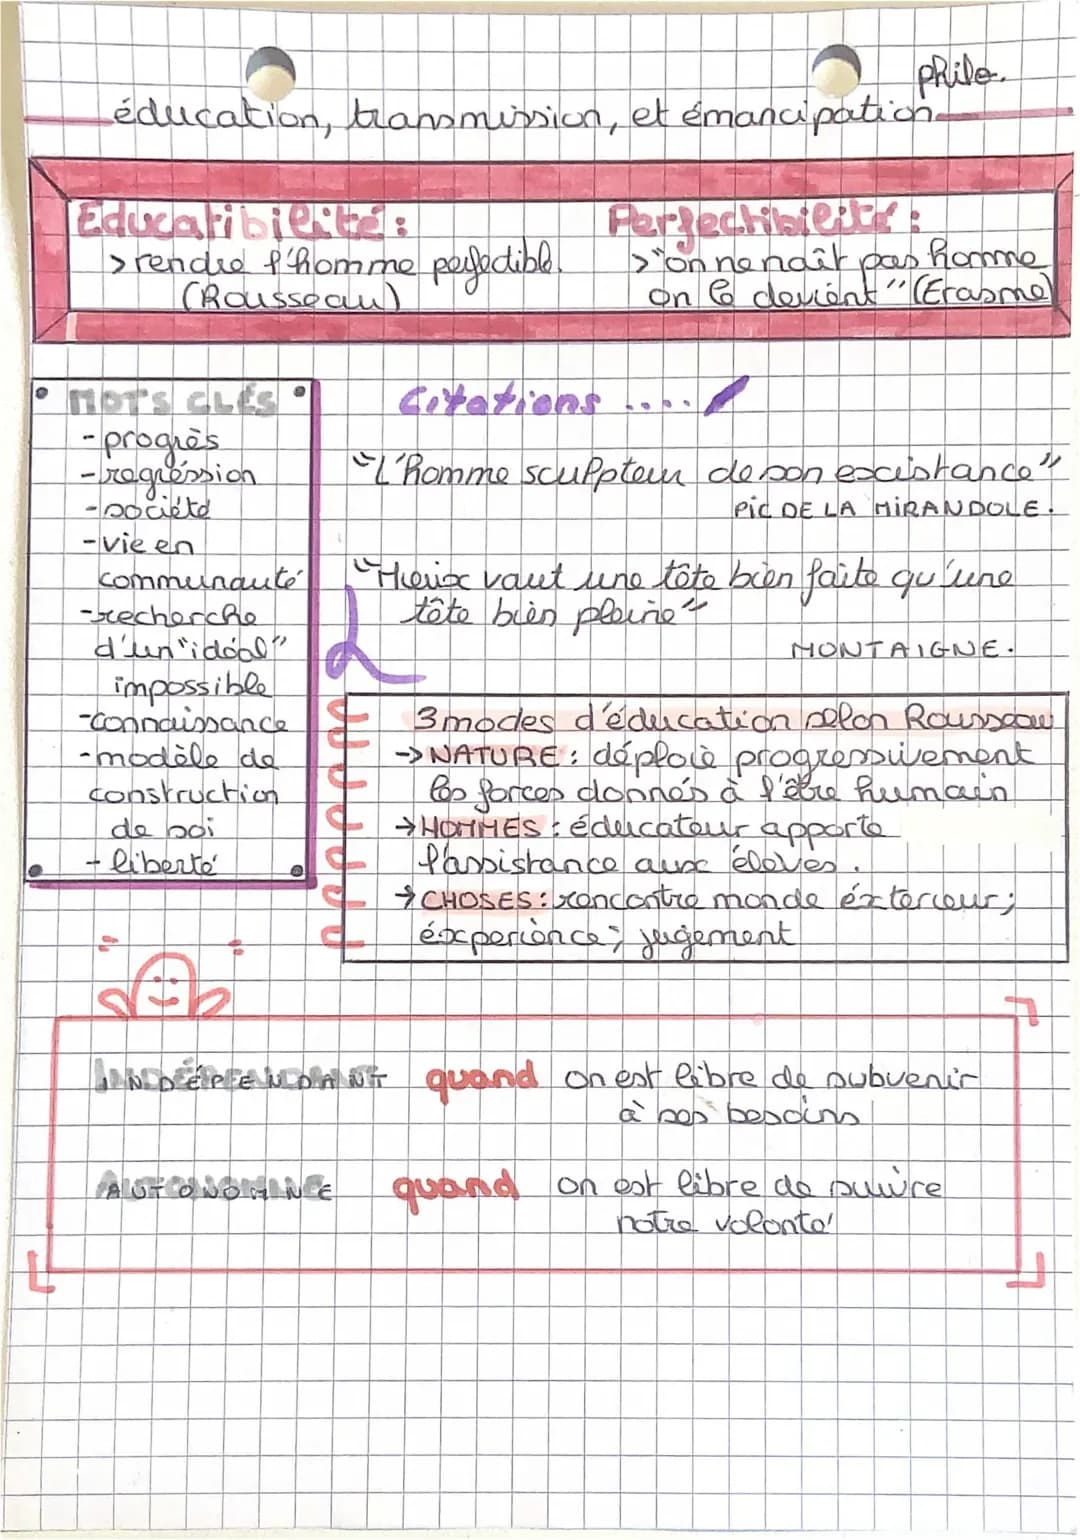 philo.
éducation, transmission, et émancipation.
Educatibilité :
> rendre l'homme perfectible.
(Rousseau)
Perfectibilité :
> "on ne naît pas homme
on le devient" (Erasme)
MOTS CLÉS
- progrès
- regréssion
- société
- vie en
communauté
- recherche
d'un "idéal"
impossible
- connaissance
- modèle de
construction
de soi
- liberté
Citations ....
"L'homme sculpteur de son existance"
PIC DE LA MIRANDOLE.
"Mieux vaut une tête bien faite qu'une
tête bien pleine"
MONTAIGNE.
3 modes d'éducation selon Rousseau
-> NATURE : déploie progressivement
les forces donnés à l'être humain
-> HOMMES : éducateur apporte
l'assistance aux élèves.
-> CHOSES : rencontre monde éxterieur ;
éxperience ; jugement
INDÉPENDANT quand on est libre de subvenir
à ses besoins
AUTONOMINE quand on est libre de suivre
notre volonté